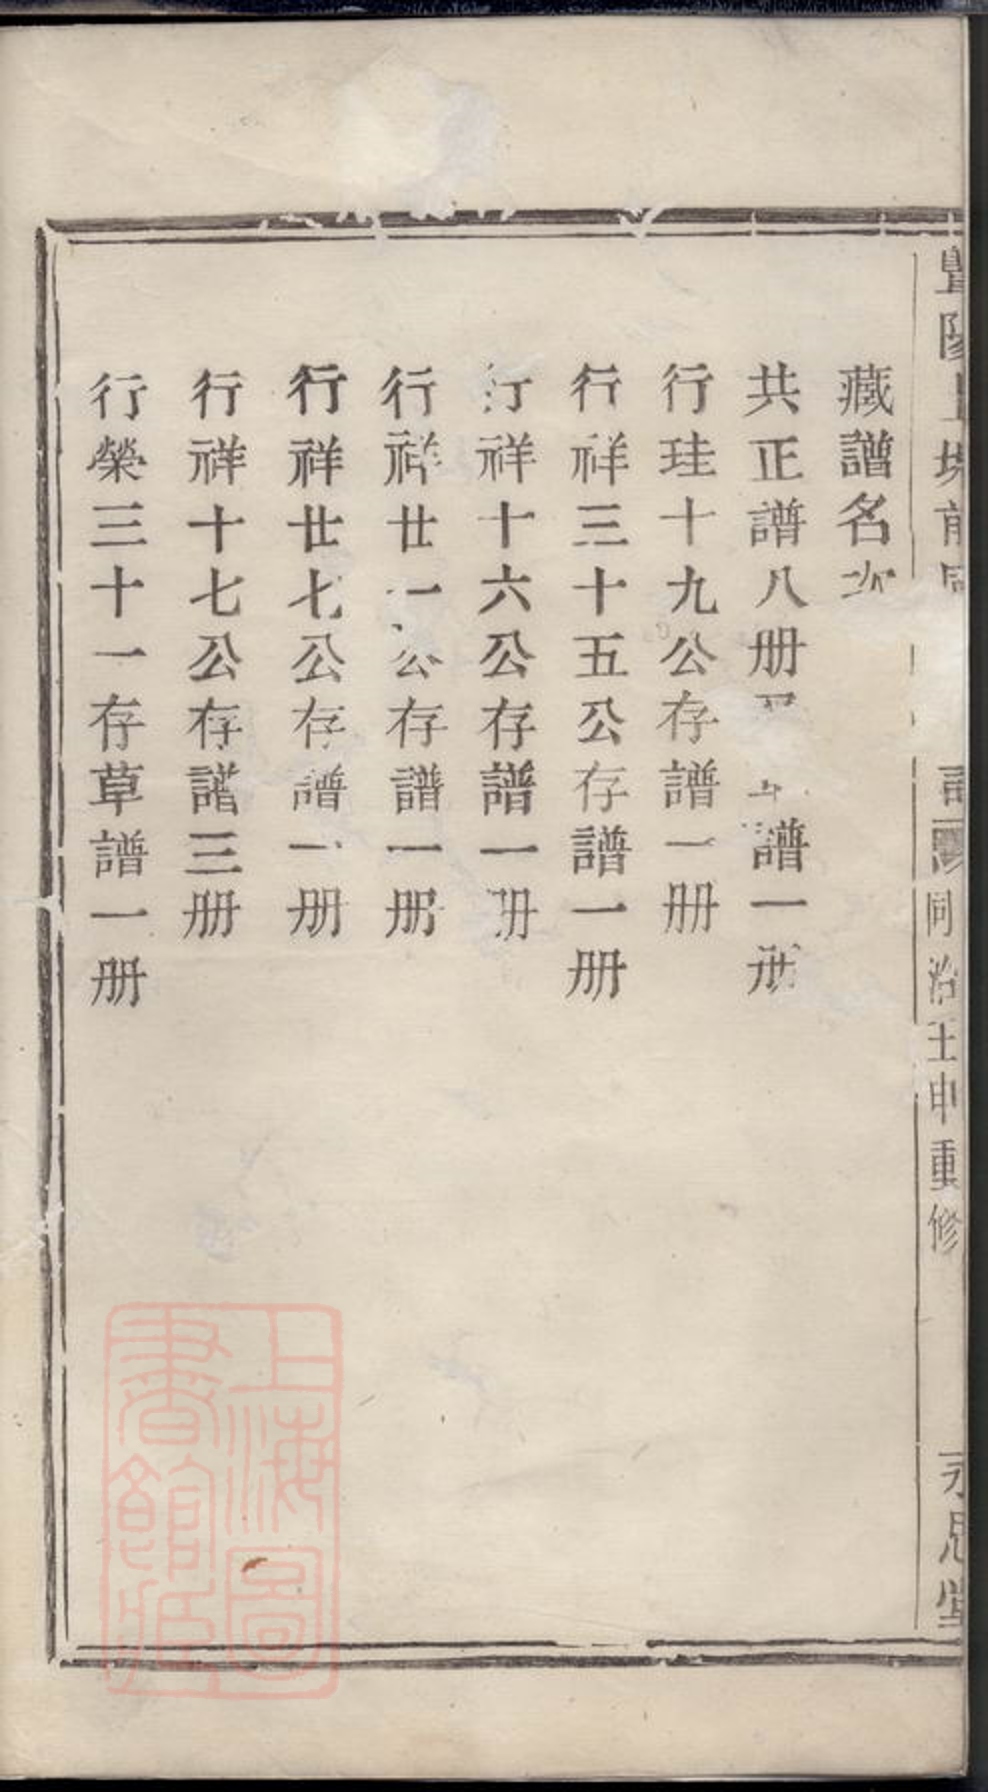 藏譜名次
共正譜八册 譜一册
行珪十九公存譜一册
行祥三十五公存譜一册
行祥十六公存譜一册
行祥廿一公存譜一册
行祥廿七公存譜一册
行祥十七公存譜三册
行榮三十一存草譜一册
暨陽上 前
同治壬申重修
永思堂
上海圖書館藏